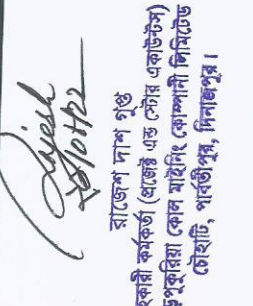 Rajesh
রাজেশ দাশ গুপ্ত
হকারী কর্মকর্তা (প্রজেক্ট এন্ড স্টোর একাউন্টস)
পুকুরিয়া কোল মাইনিং কোম্পানী লিমিটেড
চৌহাটি, পার্বতীপুর, দিনাজপুর।